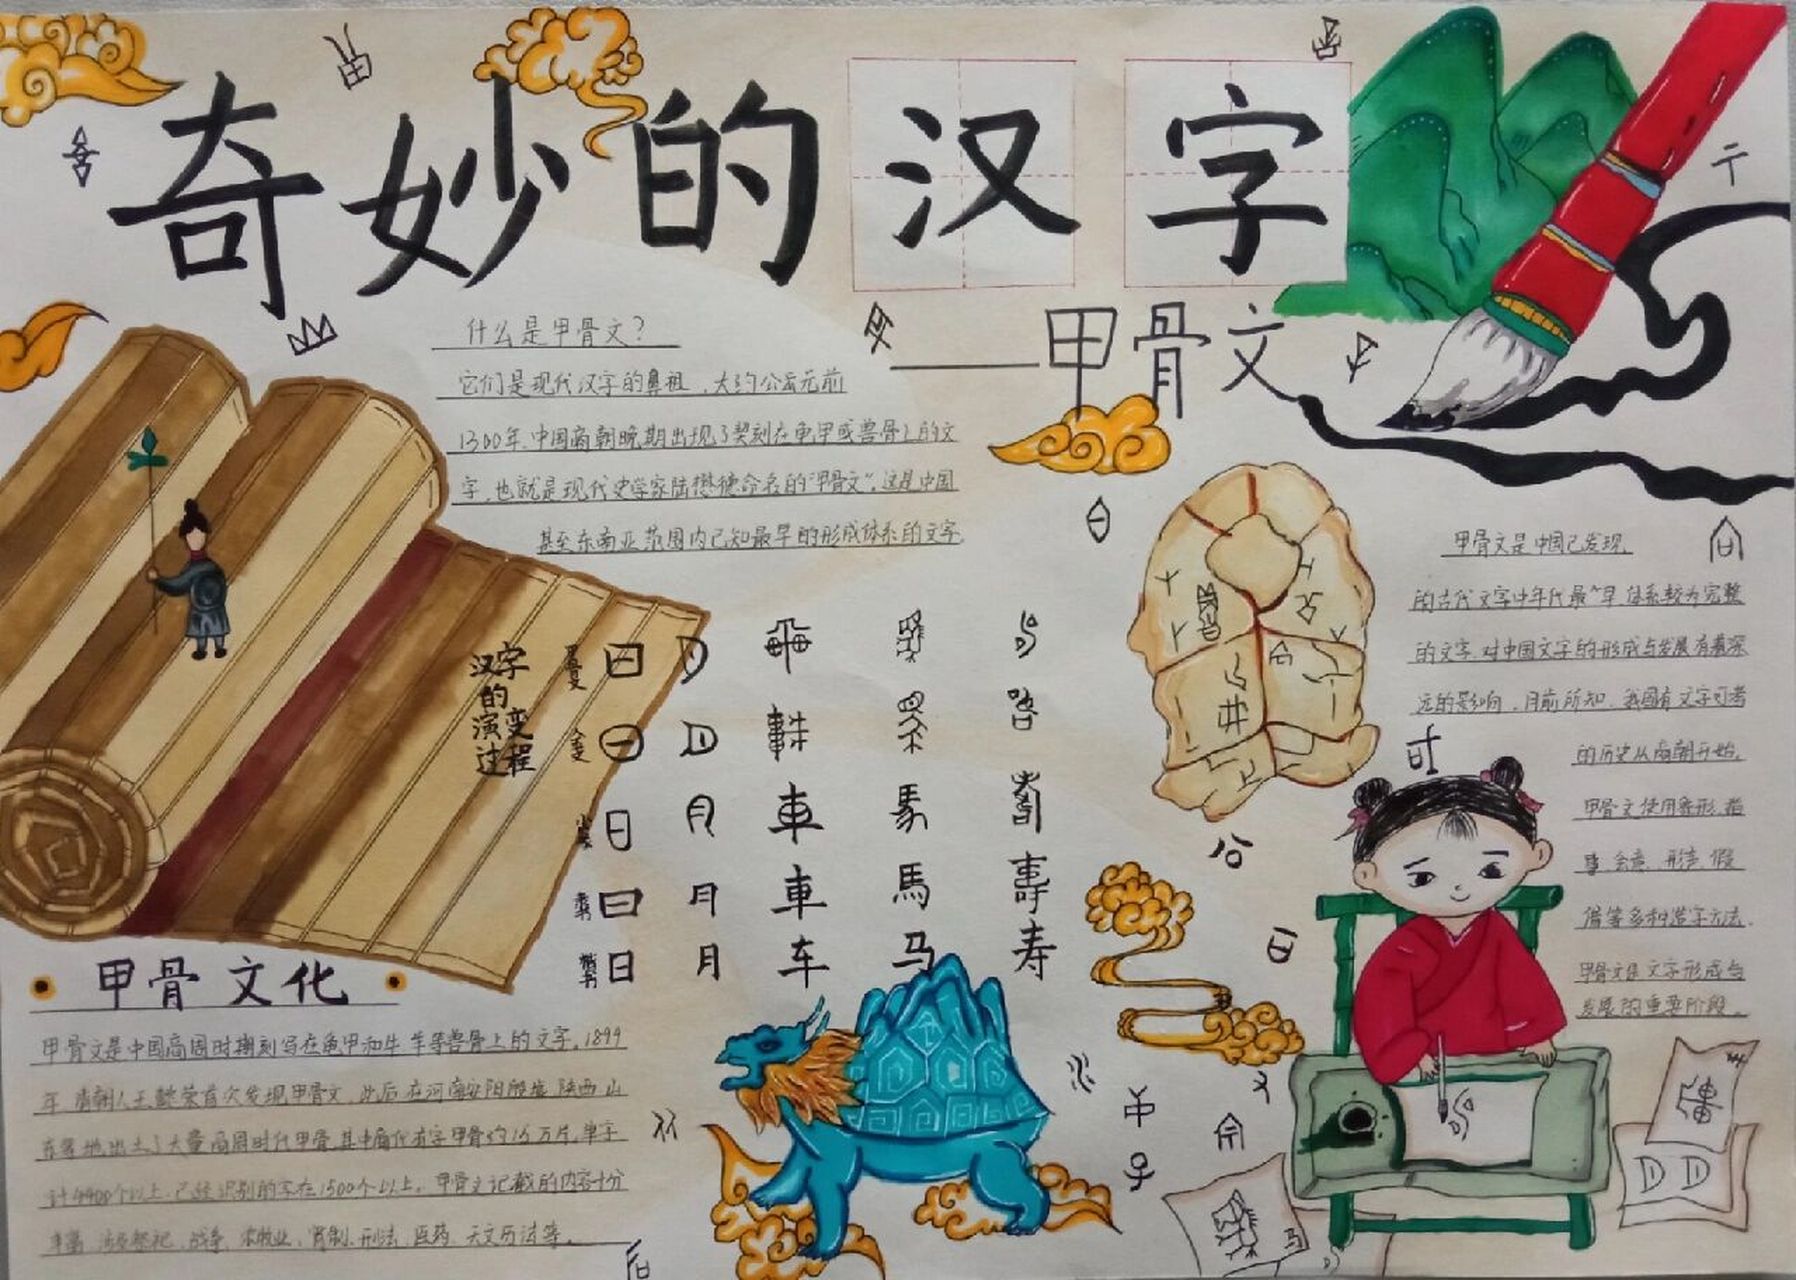 奇妙的汉字
——甲骨文
什么是甲骨文？
它们是现代汉字的鼻祖，大约公元前
1300年，中国商朝晚期出现了契刻在龟甲或兽骨上的文
字，也就是现代史学家陆懋德命名的“甲骨文”。这是中国
甚至东南亚范围内已知最早的形成体系的文字
甲骨文是中国已发现
的古代文字中年代最早、体系较为完整
的文字，对中国文字的形成与发展有着深
远的影响，目前所知，我国有文字可考
的历史从商朝开始，
甲骨文使用象形、指
事、会意、形声、假
借等多种造字方法，
甲骨文是文字形成与
发展的重要阶段。
汉字
的
演变
过程
甲骨文
金文
小篆
隶书 日 月 車 馬 壽
楷书 日 月 车 马 寿
甲骨文化
甲骨文是中国商周时期刻写在龟甲和牛羊等兽骨上的文字。1899
年，清朝人王懿荣首次发现甲骨文，此后在河南安阳殷墟、陕西、山
东等地出土了大量商周时代甲骨，其中商代有字甲骨约15万片，单字
计4400个以上，已经识别的字在1500个以上。甲骨文记载的内容十分
丰富，涉及祭祀、战争、农牧业、官制、刑法、医药、天文历法等。
马